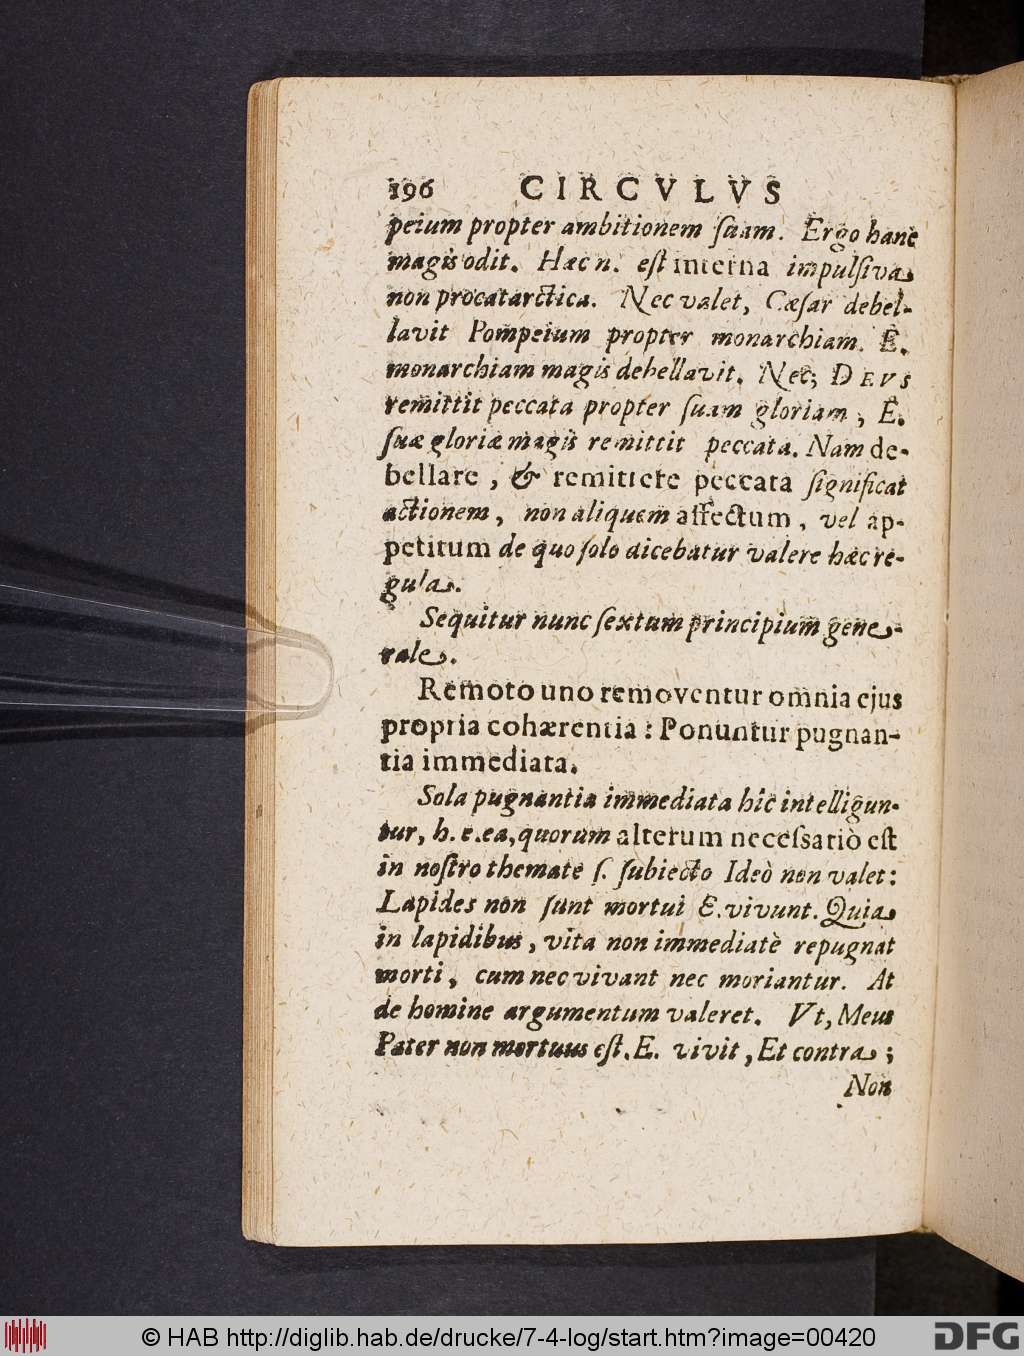 196 CIRCVLVS
peium propter ambitionem suam. Ergo hanc
magis odit. Hæc n. est interna impulsiva
non procatarctica. Nec valet, Cæsar debel-
lavit Pompeium propter monarchiam. E.
monarchiam magis debellavit. Nec; DEVS
remittit peccata propter suam gloriam, E.
suæ gloriæ magis remittit peccata. Nam de-
bellare, & remittere peccata significat
actionem, non aliquem affectum, vel ap-
petitum de quo solo dicebatur valere hæc re-
gula.
Sequitur nunc sextum principium gene-
rale.
Remoto uno removentur omnia ejus
propria cohærentia: Ponuntur pugnan-
tia immediata.
Sola pugnantia immediata hîc intelligun-
tur, h. e. ea, quorum alterum necessariò est
in nostro themate s. subiecto Ideò non valet:
Lapides non sunt mortui E. vivunt. Quia
in lapidibus, vita non immediatè repugnat
morti, cum nec vivant nec moriantur. At
de homine argumentum valeret. Vt, Meus
Pater non mortuus est. E. vivit, Et contra;
Non
© HAB http://diglib.hab.de/drucke/7-4-log/start.htm?image=00420
DFG